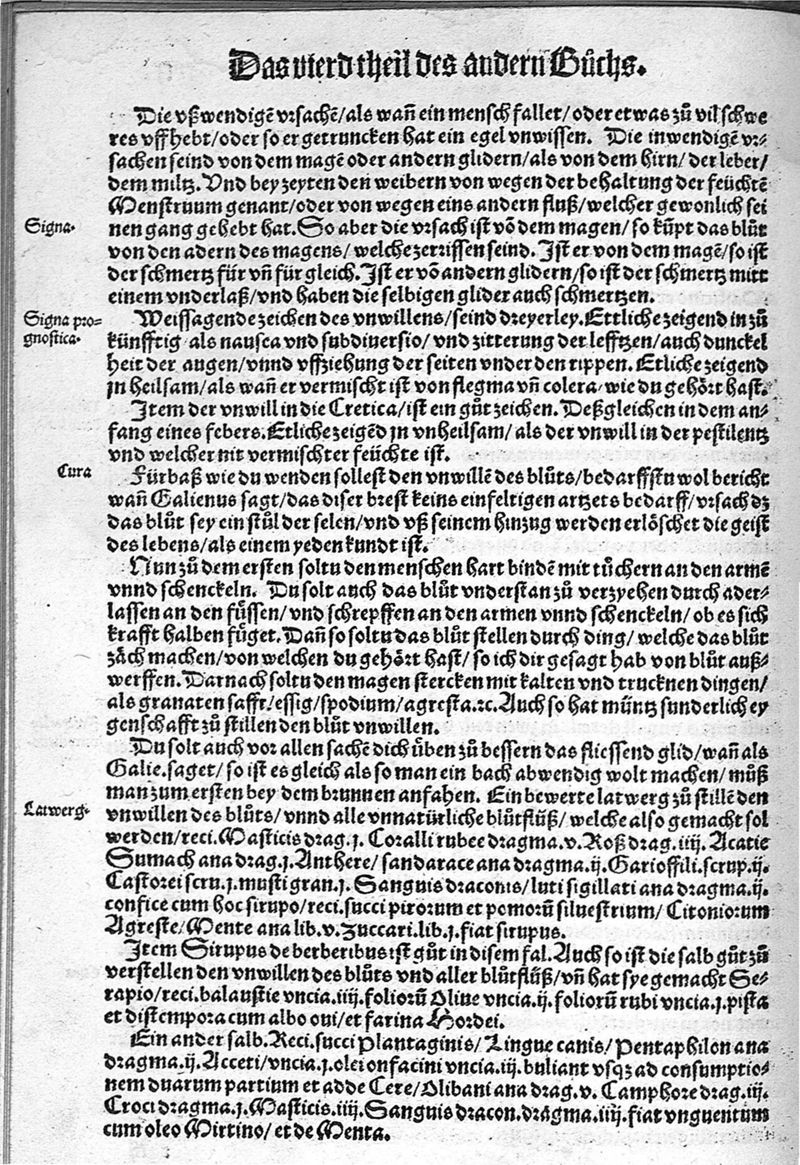 Das vierd theil des andern Bůchs.
Die vßwendigẽ vrsachẽ/als wañ ein mensch fallet/oder etwas zů vil schwe
res vffhebt/oder so er getruncken hat ein egel vnwissen. Die inwendigẽ vr-
sachen seind von dem magẽ oder andern glidern/als von dem hirn/der leber/
dem miltz. Vnd bey zeyten den weibern von wegen der behaltung der feüchtẽ
Menstruum genant/oder von wegen eins andern fluß/welcher gewonlich sei
Signa.
nen gang gehebt hat. So aber die vrsach ist võ dem magen/so kũpt das blůt
von den adern des magens/welche zerrissen seind. Ist er von dem magẽ/so ist
der schmertz für vñ für gleich. Ist er võ andern glidern/so ist der schmertz mitt
einem vnderlaß/vnd haben die selbigen glider auch schmertzen.
Signa pro-
gnostica.
Weissagende zeichen des vnwillens/seind dreyerley. Ettliche zeigend in zů
künfftig als nausea vnd subdiuersio/vnd zitterung der lefftzen/auch dunckel
heit der augen/vnnd vffziehung der seiten vnder den rippen. Etliche zeigend
jn heilsam/als wañ er vermischt ist von flegma vñ colera/wie du gehört hast.
Item der vnwill in die Cretica/ist ein gůt zeichen. Deßgleichen in dem an-
fang eines febers. Etliche zeigẽd jn vnheilsam/als der vnwill in der pestilentz
vnd welcher nit vermischter feüchte ist.
Cura
Fürbaß wie du wenden sollest den vnwillẽ des blůts/bedarffstu wol bericht
wañ Galienus sagt/das diser brest keins einfeltigen artzets bedarff/vrsach dz
das blůt sey ein stůl der selen/vnd vß seinem hinzug werden erlöschet die geist
des lebens/als einem yeden kundt ist.
Nun zů dem ersten soltu den menschen hart bindẽ mit tůchern an den armẽ
vnnd schenckeln. Du solt auch das blůt vnderstan zů verzyehen durch ader-
lassen an den füssen/vnd schrepffen an den armen vnnd schenckeln/ob es sich
krafft halben füget. Dañ so soltu das blůt stellen durch ding/welche das blůt
zäch machen/von welchen du gehört hast/so ich dir gesagt hab von blůt auß-
werffen. Darnach soltu den magen stercken mit kalten vnd trucknen dingen/
als granaten safft/essig/spodium/agresta.rc. Auch so hat müntz sunderlich ey
genschafft zů stillen den blůt vnwillen.
Du solt auch vor allen sachẽ dich üben zů bessern das fliessend glid/wañ als
Galie.saget/so ist es gleich als so man ein bach abwendig wolt machen/můß
man zum ersten bey dem brunnen anfahen. Ein bewerte latwerg zů stillẽ den
Latwerg.
vnwillen des blůts/vnnd alle vnnatürliche blůtflüß/welche also gemacht sol
werden/reci.Masticis drag.j. Coralli rubee dragma.v. Roß drag.iiij. Acatie
Sumach ana drag.j. Anthere/sandarace ana dragma.ij. Garioffili.scrup.ij.
Castorei scru.j.musti gran.j. Sanguis draconis/luti sigillati ana dragma.ij.
confice cum hoc sirupo/reci.succi pirorum et pomorũ siluestrium/Citoniorum
Agreste/Mente ana lib.v.zuccari.lib.j.fiat sirupus.
Item Sirupus de berberibus ist gůt in disem fal. Auch so ist die salb gůt zů
verstellen den vnwillen des blůts vnd aller blůtflüß/vñ hat sye gemacht Se-
rapio/reci.balaustie vncia.iiij.foliorũ Oliue vncia.ij.foliorũ rubi vncia.j.pista
et distempora cum albo oui/et farina Hordei.
Ein ander salb. Reci.succi Plantaginis/Lingue canis/Pentaphilon ana
dragma.ij. Acceti/vncia.j.olei onfacini vncia.iij.buliant vsqz ad consumptio-
nem duarum partium et adde Cere/Olibani ana drag.v. Camphore drag.iij.
Croci dragma.j.Masticis.iiij. Sanguis dracon.dragma.iiij.fiat vnguentum
cum oleo Mirtino/et de Menta.